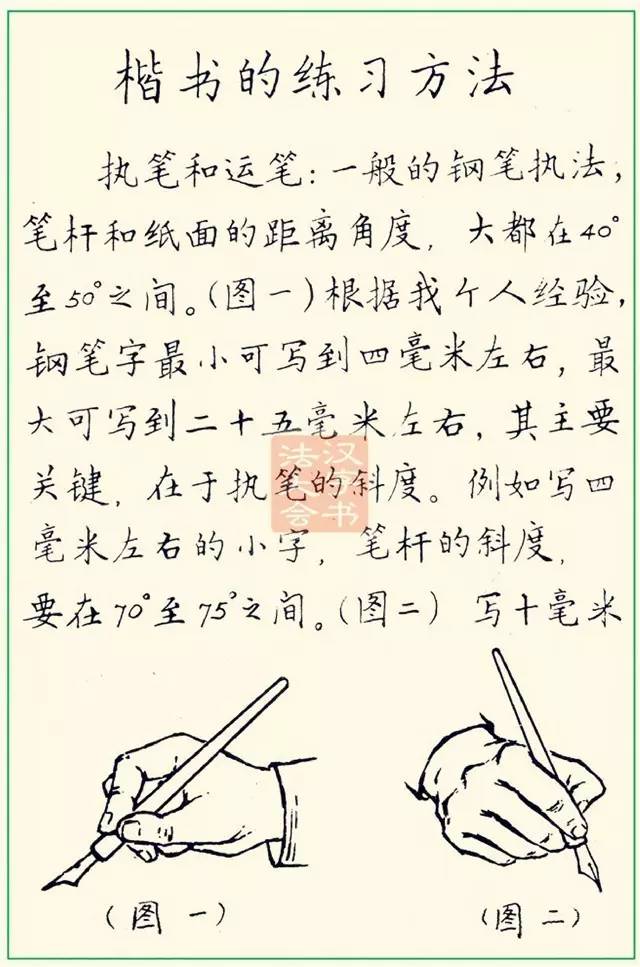 楷书的练习方法
执笔和运笔:一般的钢笔执法,
笔杆和纸面的距离角度,大都在40°
至50°之间。(图一)根据我个人经验,
钢笔字最小可写到四毫米左右,最
大可写到二十五毫米左右,其主要
关键,在于执笔的斜度。例如写四
毫米左右的小字,笔杆的斜度,
要在70°至75°之间。(图二)写十毫米
(图一)
(图二)